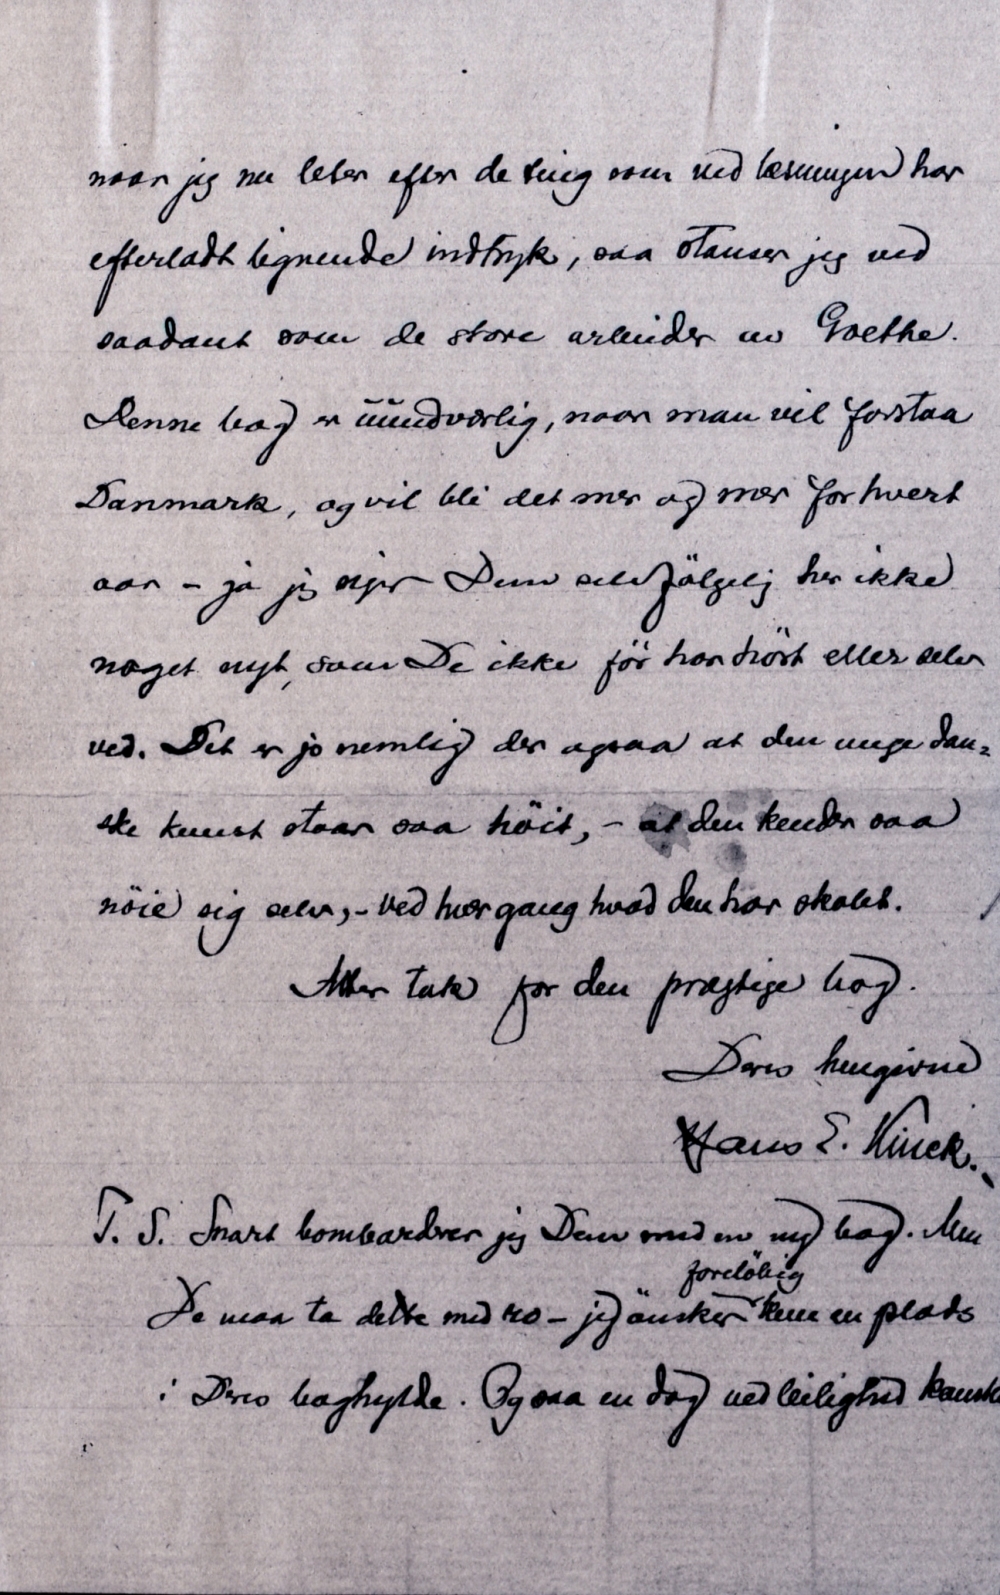 naar jeg nu leter efter de ting som ved læsningen har
efterladt lignende indtryk, saa stanser jeg ved
saadant som de store arbeider av Goethe.
Denne bog er uundværlig, naar man vil forstaa
Danmark, og vil bli det mer og mer for hvert
aar – ja jeg siger Dem selvfölgelig her ikke
noget nyt, som De ikke för har hört eller selv
ved. Det er jo nemlig der ogsaa at den unge dan=
ske kunst staar saa höit, – at den kender saa
nöie sig selv, – ved hver gang hvad den har skabt.
Atter tak for den prægtige bog.
Deres hengivne
Hans E. Kinck.
P. S. Snart bombarderer jeg Dem med en ny bog. Men
forelöbig
De maa ta dette med ro – jeg önsker kun en plads
i Deres boghylde. Og saa en dag ved leilighed kanske